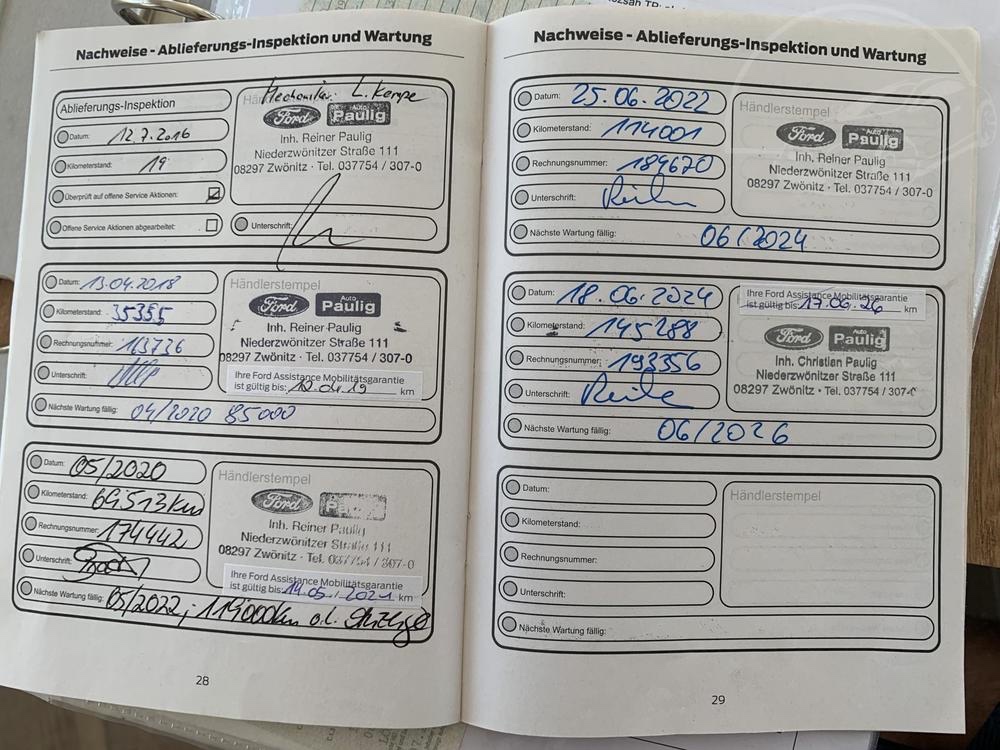 Nachweise - Ablieferungs-Inspektion und Wartung
Ablieferungs-Inspektion
Datum: 12.7.2016
Kilometerstand: 19
Überprüft auf offene Service Aktionen:
Offene Service Aktionen abgearbeitet:
Mechaniker: L. Kempe
Ford Auto Paulig
Inh. Reiner Paulig
Niederzwönitzer Straße 111
08297 Zwönitz · Tel. 037754 / 307-0
Unterschrift:
Datum: 13.04.2018
Kilometerstand: 35355
Rechnungsnummer: 163736
Unterschrift:
Händlerstempel
Ford Auto Paulig
Inh. Reiner Paulig
Niederzwönitzer Straße 111
08297 Zwönitz · Tel. 037754 / 307-0
Ihre Ford Assistance Mobilitätsgarantie
ist gültig bis: 12.04.19 km
Nächste Wartung fällig: 04/2020 85000
Datum: 05/2020
Kilometerstand: 69513km
Rechnungsnummer: 174442
Unterschrift:
Händlerstempel
Ford
Inh. Reiner Paulig
Niederzwönitzer Straße 111
08297 Zwönitz · Tel. 037754 / 307-0
Ihre Ford Assistance Mobilitätsgarantie
ist gültig bis: 14.05.2021 km
Nächste Wartung fällig: 05/2022; 119000km o.l. Anzeige
28
Nachweise - Ablieferungs-Inspektion und Wartung
Datum: 25.06.2022
Kilometerstand: 114001
Rechnungsnummer: 184670
Unterschrift:
Händlerstempel
Ford Auto Paulig
Inh. Reiner Paulig
Niederzwönitzer Straße 111
08297 Zwönitz · Tel. 037754 / 307-0
Nächste Wartung fällig: 06/2024
Datum: 18.06.2024
Kilometerstand: 145288
Rechnungsnummer: 193356
Unterschrift:
Ihre Ford Assistance Mobilitätsgarantie
ist gültig bis: 17.06.26 km
Ford Auto Paulig
Inh. Christian Paulig
Niederzwönitzer Straße 111
08297 Zwönitz · Tel. 037754 / 307-0
Nächste Wartung fällig: 06/2026
Datum:
Kilometerstand:
Rechnungsnummer:
Unterschrift:
Händlerstempel
Nächste Wartung fällig:
29